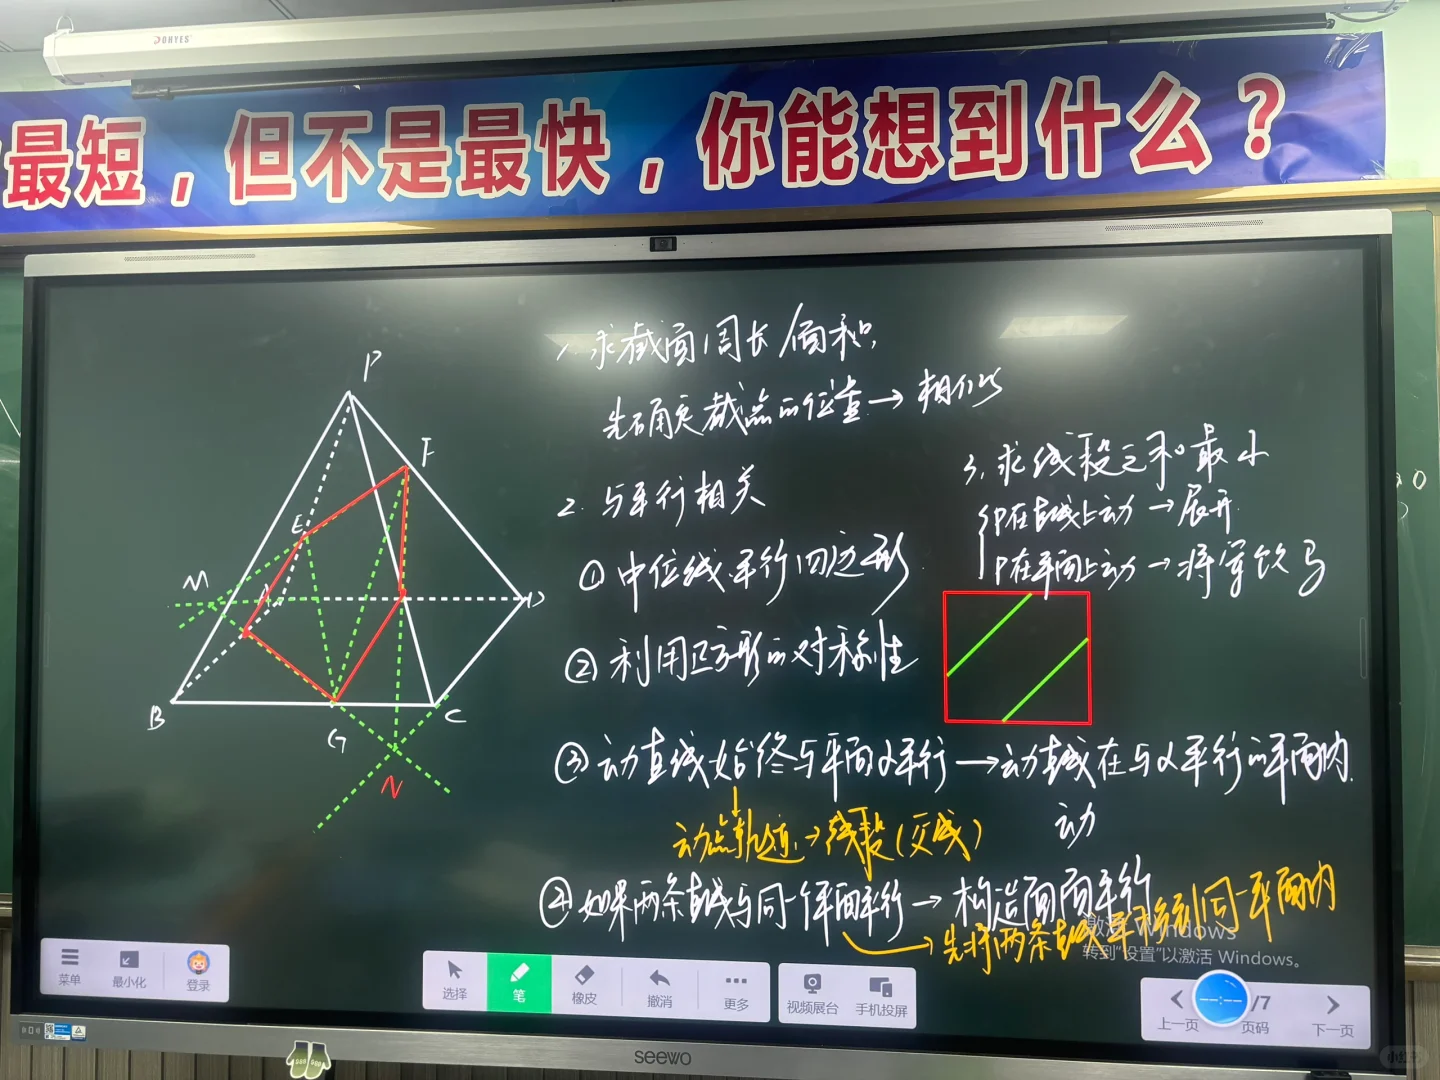 DOHYES
最短，但不是最快，你能想到什么？
1. 求截面周长/面积,
先确定截点的位置→相似
2. 与平行相关
①中位线.平行四边形
②利用正方形的对称性
③动直线始终与平面α平行→动直线在与α平行的平面内.
动
动点轨迹→线段(交线)
④如果两条直线与同一个平面平行→构造面面平行
→先将两条直线平移到同一平面内
3. 求线段之和最小
P在直线上动→展开
P在平面上动→将军饮马
0
P
F
E
M
A
D
B
G
C
N
激活 Windows
转到"设置"以激活 Windows。
菜单
最小化
登录
选择
笔
橡皮
撤消
更多
视频展台
手机投屏
上一页
/7
页码
下一页
seewo
小红书